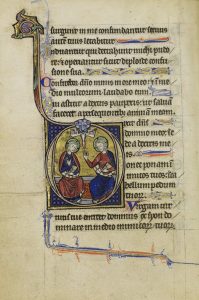 surgunt in me confundantur seruus
autem tuus letabitur
nduantur qui detrahunt michi pudo
re et operiantur sicut diploide confu
sione sua
Confitebor dño nimis in ore meo et in
medio multorum laudabo eum
ia astitit a dextris pauperis ut saluā
faceret a persequentib; animam meam
ixit dñs
domino meo se
de a dextris meis
onec ponam i
nimicos tuos sca
bellum pedum tuor
Virgam uir
tutis tue emittet dominus ex syon do
minare in medio inimicor tuor